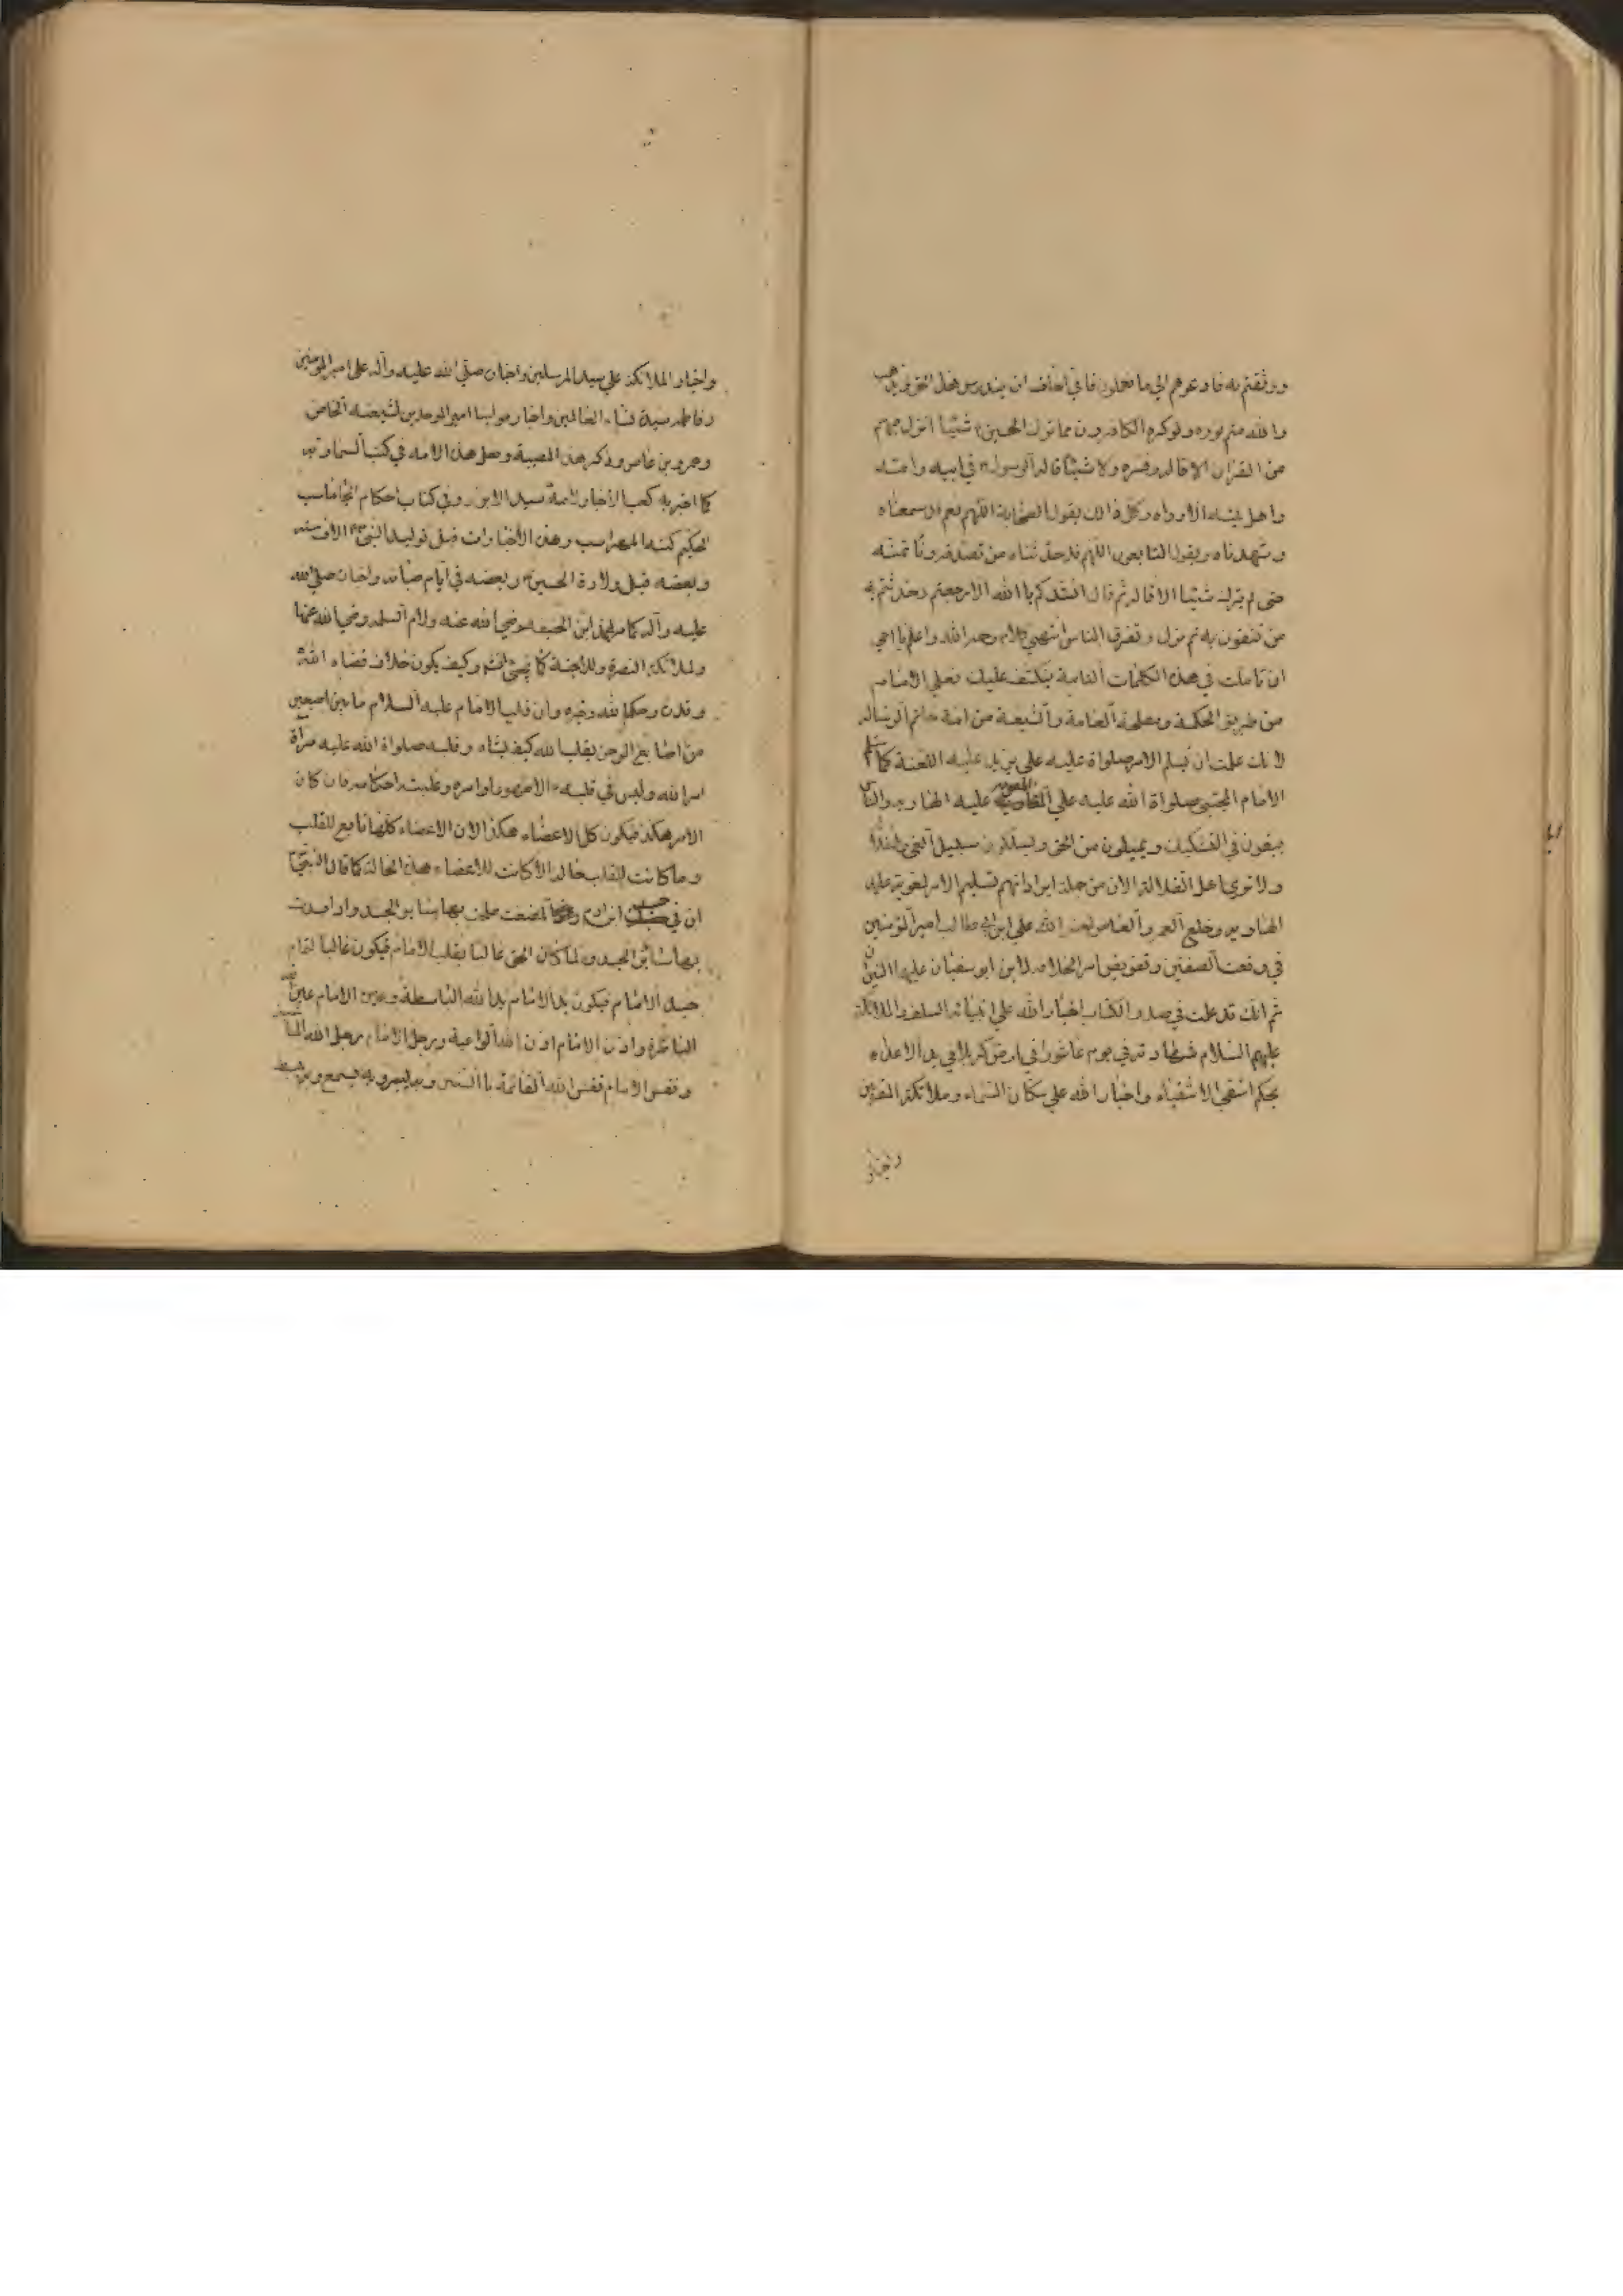 ووثقتم به فادعوهم الى ما تعلمون فاني اخاف ان يندرس هذا الحق ويذهب
والله متم نوره ولو كره الكافرون مما ترك الحسين شيئا انزل فيهم
من القران الا قاله وفسره ولا شيئا قاله الرسول في ابيه وامه
واهل بيته الا رواه وكل ذالك يقول الصحابة اللهم نعم قد سمعناه
وشهدناه ويقول التابعون اللهم قد حدثناه من تصدقه ونأتمنه
حتى لم يترك شيئا الا قاله ثم قال انشدكم باالله الا رجعتم وحدثتم به
من تثقون به ثم نزل وتفرق الناس انتهى كلام رحمه الله واعلم يا اخي
ان تاملت في هذه الكلمات التامة ينكشف عليك فعلى الامام
من طريق الحكمة ومصلحة العامة والشيعة من امة خاتم الرسالة
لانك علمت ان يسلم الامر صلواة عليه على يزيد عليه اللعنة كما سلم
الامام المجتبى صلواة الله عليه على عليه الهاويه والناس
يبقون في التشكيك ويميلون من الحق ويسلكون سبيل الغي
ولا ترى اهل الضلالة الان من جملة ايراداتهم تسليم الامر لمعوية عليه
الهاويه وخلع العمر والعاص لعنه الله علي ابن ابي طالب امير المؤمنين
في وقعت الصفين وتفويض امر الخلافه لابن ابو سفيان عليهما النيران
ثم انك قد علمت في صدر الكتاب اخبار الله على انبيائه السلف والملائكة
عليهم السلام شهادته في يوم عاشورا في ارض كربلا في يد الاعداء
بحكم اشقى الاشقياء واخبار الله على سكان السماء وملائكته المقربين
واخبار
واخبار الملائكة على سيد المرسلين واخباره صلى الله عليه وآله على امير المؤمنين
وفاطمه سيدة نساء العالمين واخبار مولينا امير الموحدين لشيعته الخاص
وعمرو بن عاص وذكر هذه المصيبة وعمل هذه الامه في كتب السماوته
كما اخبر به كعب الاخبار لامة سيد الابرار وفي كتاب احكام الجاماسب
الحكيم كتبه وهذه الاخبارات قبل توليد النبي الاف سنه
وبعضه قبل ولادة الحسين وبعضه في ايام صباه واخباره صلى الله
عليه وآله كما مر لمحمد ابن الحنيفه رضي الله عنه ولام السلمه رضي الله عنها
ولملائكة النصرة وللاجنة كما وكيف يكون خلاف قضاء الله
وقدره وحكم الله وخبره وان قلب الامام عليه السلام ما بين اصبعين
من اصابع الرحمن يقلب الله كيف يشاء وقلبه صلواة الله عليه مرآة
امر الله وليس في قلبه الا ظهور اوامره وغلبت احكامه فان كان
الامر هكذا فيكون كل الاعضاء هكذا لان الاعضاء كلها تابع للقلب
وما كانت للقلب حاله الا كانت للاعضاء هذه الحالة كما قال النبي
ان في جسد ابن ادم لمضغت صلحت بها سائر الجسد واذا فسدت
بها سائر الجسد ولما كان الحق غالبا بقلب الامام فيكون غالبا لتمام
جسد الامام فيكون يد الامام يد الله الباسطة وعين الامام عين الله
الناظرة واذن الامام اذن الله الواعية ورجل الامام رجل الله
ونفس الامام نفس الله القائمة باالسنن وبه يبصر وبه يسمع وبه يبطش